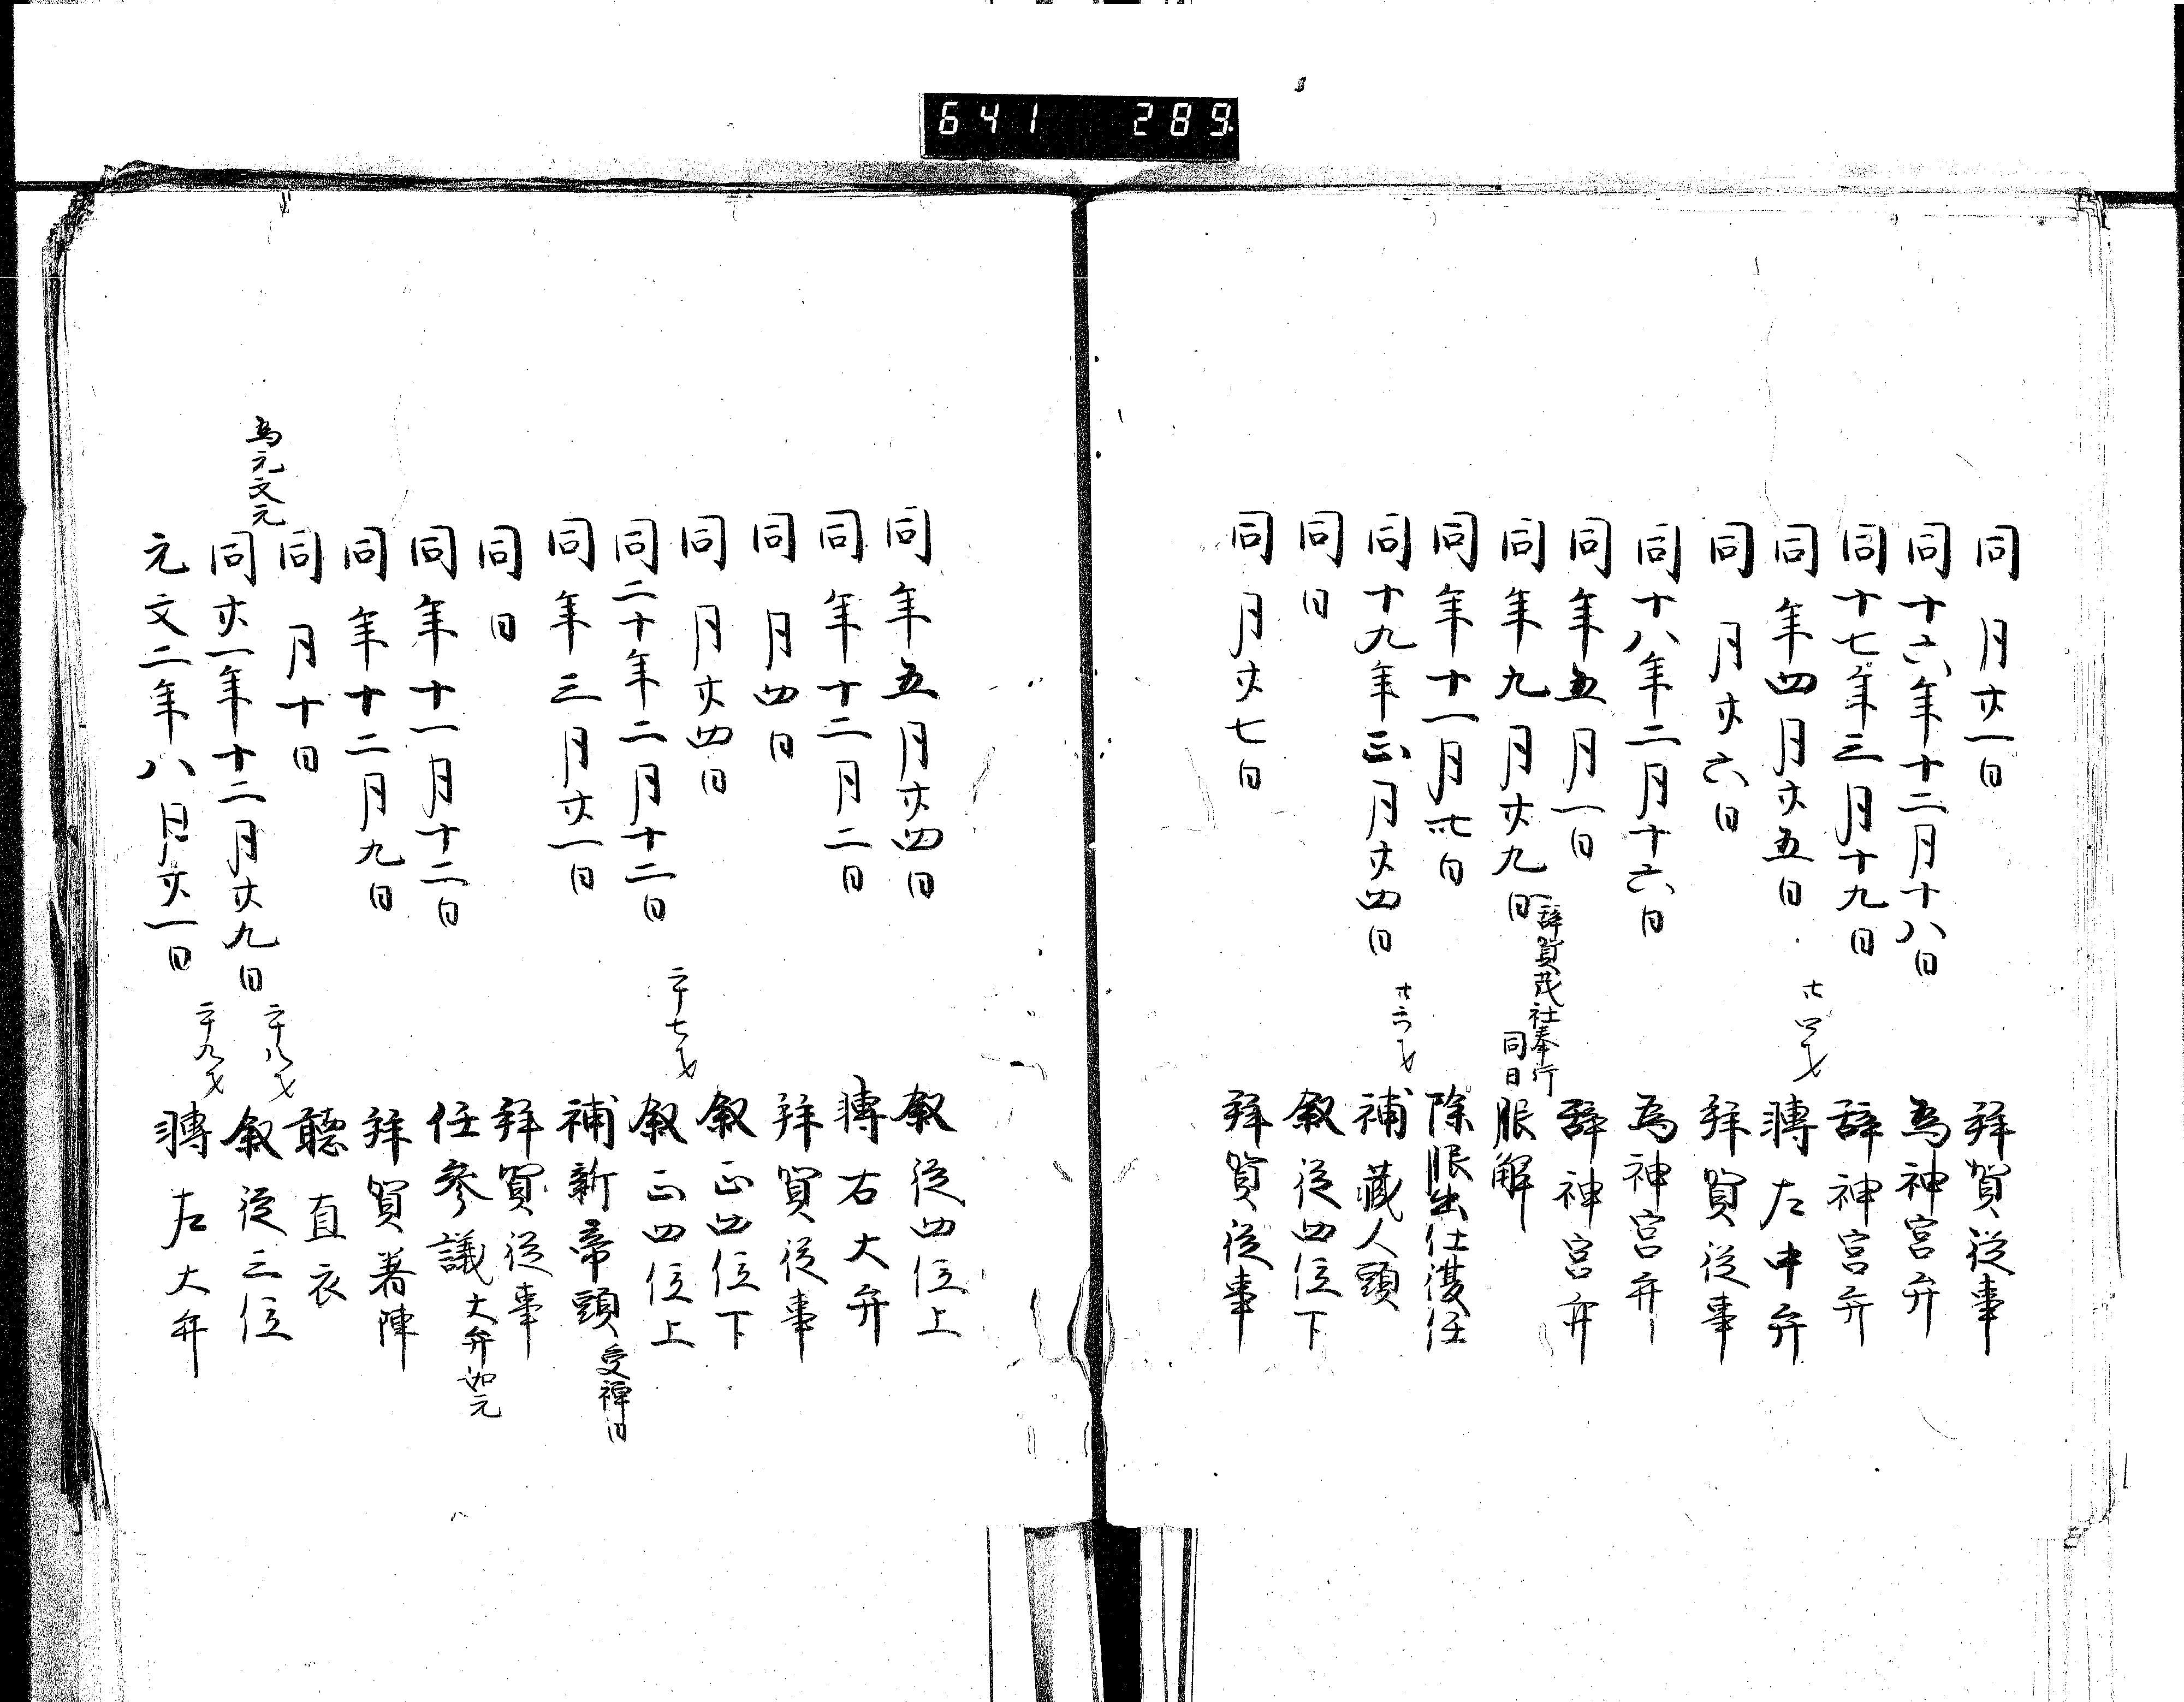 641 289
同 月廿一日 拜賀從事
同十六年十二月十八日 為神宮弁
同十七年三月十九日 辞神宮弁
同年四月廿五日 廿四才 轉左中弁
同 月廿六日 拜賀從事
同十八年二月十六日 為神宮弁
同年五月一日 辞神宮弁
同年九月廿九日 辞賀茂社奉行 同日 服解
同年十一月廿七日 除服出仕復任
同十九年正月廿四日 廿六才 補藏人頭
同日 叙從四位下
同月廿七日 拜賀從事
同年五月廿四日 叙從四位上
同年十二月二日 轉右大弁
同月四日 拜賀從事
同月廿四日 叙正四位下
同二十年二月十二日 二十七才 叙正四位上
同年三月廿一日 補新帝頭 受禅日
同日 拜賀從事
同年十一月十二日 任参議 大弁如元
同年十二月九日 拜賀著陣
同月十日 聽直衣
為元文元
同廿一年十二月廿九日 二十八才 叙從三位
元文二年八月廿一日 二十九才 轉左大弁